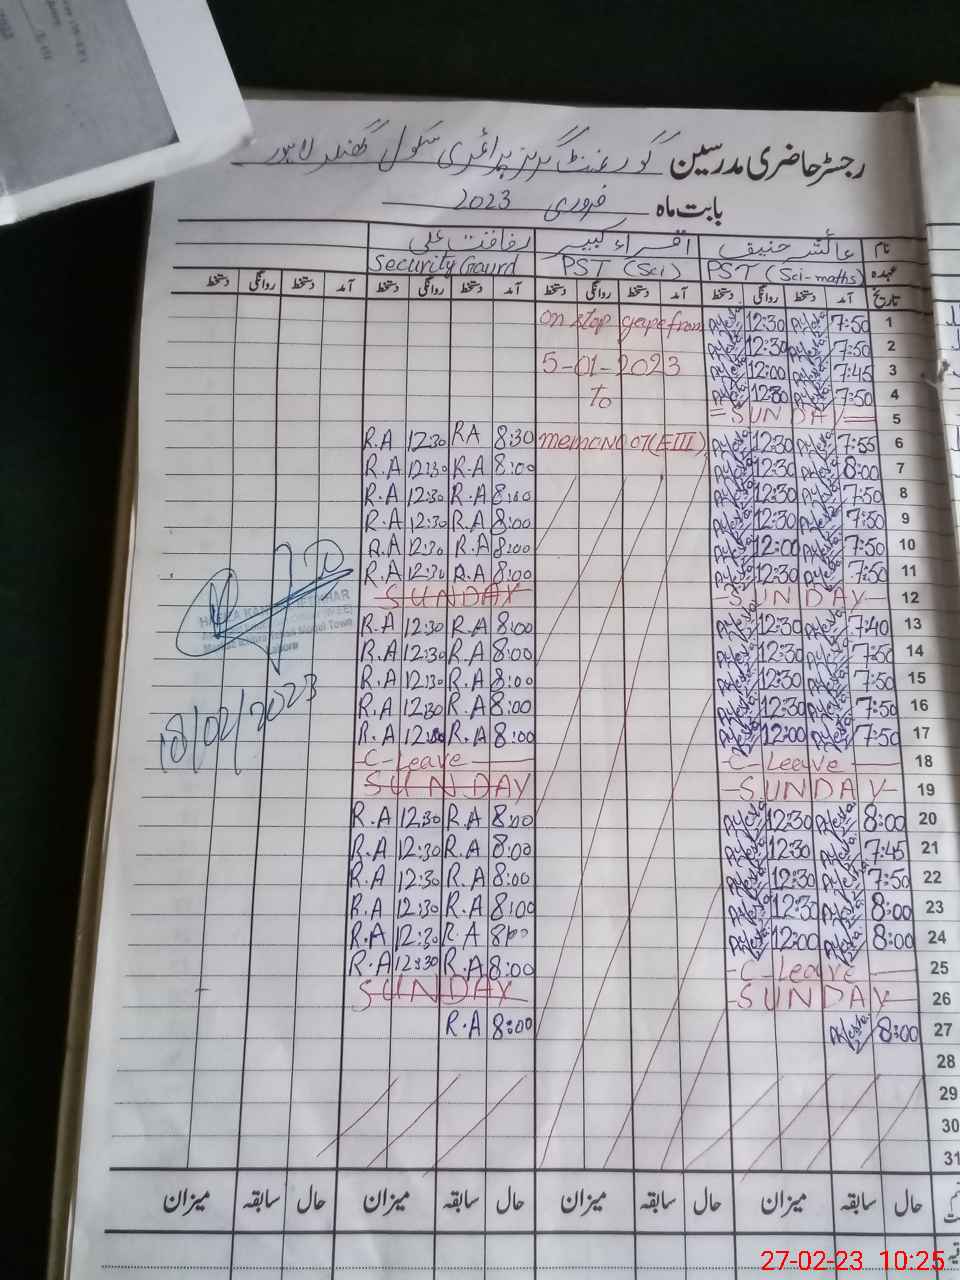 رجسٹر حاضری مدرسین گورنمنٹ گرلز پرائمری سکول گھنڈر لاہور
بابت ماہ فروری 2023
نام عائشہ حنیف اقراء کبیر رفاقت علی
عہدہ PST (Sci-maths) PST (Sci) Security Gaurd
تاریخ آمد دستخط روانگی دستخط آمد دستخط روانگی دستخط آمد دستخط روانگی دستخط آمد دستخط روانگی دستخط
1 7:50 12:30 on stop gape from
2 7:50 12:30
3 7:45 12:00 5-01-2023
4 7:50 12:30 to
5 = SUNDAY =
6 7:55 12:30 memo NO 07(E-III) 8:30 RA 12:30 R.A
7 8:00 12:30 8:00 R.A 12:30 R.A
8 7:50 12:30 8:00 R.A 12:30 R.A
9 7:50 12:30 8:00 R.A 12:30 R.A
10 7:50 12:00 8:00 R.A 12:30 R.A
11 7:50 12:30 8:00 R.A 12:30 R.A
12 SUNDAY SUNDAY
13 7:40 12:30 8:00 R.A 12:30 R.A
14 7:50 12:30 8:00 R.A 12:30 R.A
15 7:50 12:30 8:00 R.A 12:30 R.A
16 7:50 12:30 8:00 R.A 12:30 R.A
17 7:50 12:00 8:00 R.A R.A
18/02/2023
18 C-Leave C-Leave
19 SUNDAY SUNDAY
20 8:00 12:30 8:00 R.A 12:30 R.A
21 7:45 12:30 8:00 R.A 12:30 R.A
22 7:50 12:30 8:00 R.A 12:30 R.A
23 8:00 12:30 8:00 R.A 12:30 R.A
24 8:00 12:00 8:00 R.A 12:30 R.A
25 C-Leave 8:00 R.A 12:30 R.A
26 SUNDAY SUNDAY
27 8:00 8:00 R.A
28
29
30
31
حال سابقہ میزان حال سابقہ میزان حال سابقہ میزان حال سابقہ میزان
27-02-23 10:25